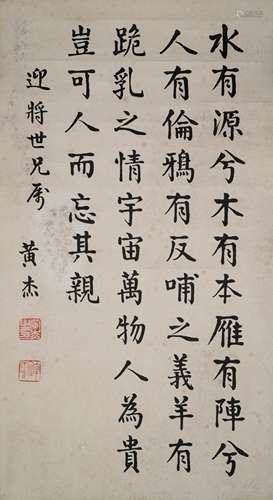 水有源兮木有本雁有陣兮
人有倫鴉有反哺之義羊有
跪乳之情宇宙萬物人為貴
豈可人而忘其親
迎將世兄属
黃杰